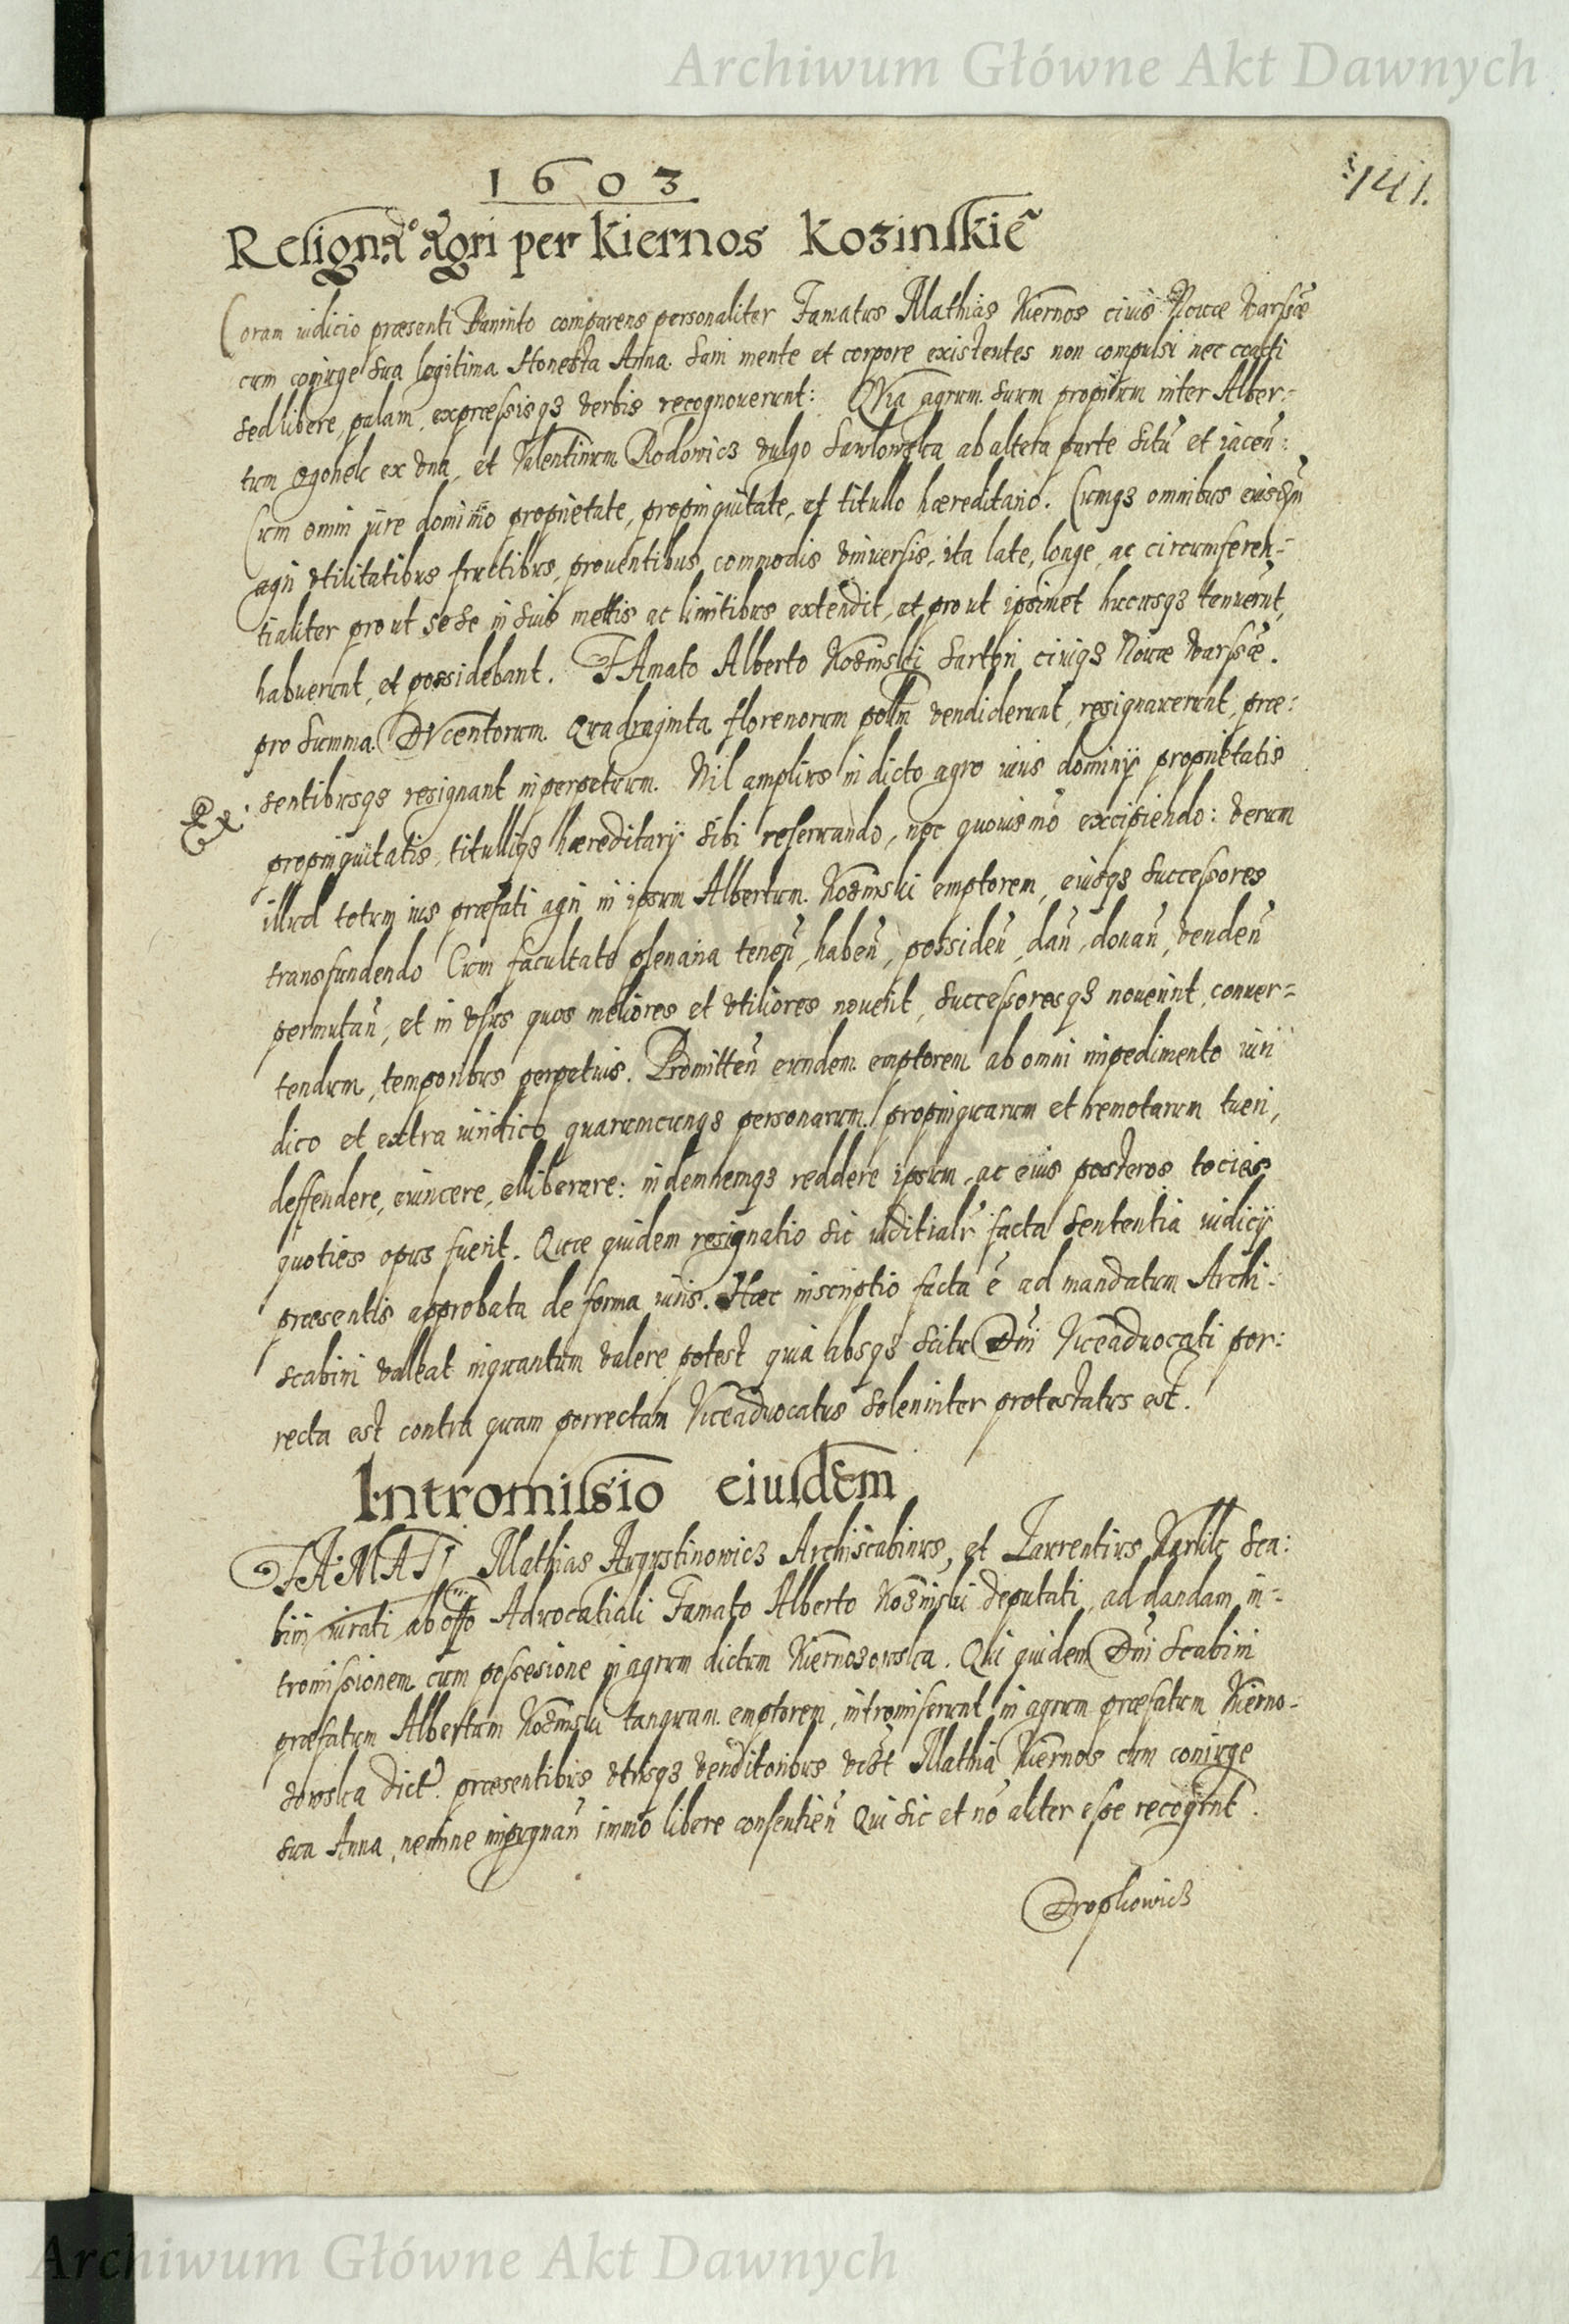 Archiwum Główne Akt Dawnych
141.
1603
Resignatio Agri per Kiernos Kozinskie~
Coram iudicio præsenti Baninto comparens personaliter Famatus Mathias Kiernos civis Novæ Varssæ
cum coniuge sua legitima Honesta Anna. Sani mente et corpore existentes non compulsi nec coacti
sed libere, palam, expræssisqз verbis recognoverunt: QVia agrum suum proprium inter Alber:
tum Ogonek ex una, et Valentinum Rodowicz vulgo Sawlowska ab altera parte situ~ et iacen~:
Cum omni iure dominio proprietate, propinquitate, et titullo hæreditario. Cumqз omnibus eiusdem
agri utilitatibus fructibus, proventibus, commodis universis, ita late, longe, ac circumferen=
tialiter prout sese in suis mettis ac limitibus extendit, et prout ipsimet hucusqз tenuerunt,
habuerunt, et possidebant. FAmato Alberto Kozinski sartori civiqз Novæ Varssæ.
pro summa DVcentorum Quadraginta florenorum pollm vendiderunt, resignaverunt, præ:
sentibusqз resignant inperpetuum. Nil amplius in dicto agro iuris dominij proprietatis
Ex.
propinquitatis, titulliqз hæreditarij sibi reservando, nec quovismo~ excipiendo: verum
illud totum ius præfati agri in ipsum Albertum Kozinski emptorem, eiusqз successores
transfundendo Cum facultate plenaria tenen~, haben~, possiden~, dan~, donan~, venden~
permutan~, et in usus quos meliores et utiliores noverit, successoresqз noverint, conver=
tendum, temporibus perpetuis. Promitten~ eundem emptorem ab omni inpedimento iuri
dico et extra iuridico quarumcunqз personarum propinquarum et remotarum tueri,
deffendere, evincere, elliberare: indemnemqз reddere ipsum ac eius posteros tocies
quoties opus fuerit. Quæ quidem resignatio sic iuditialr~ facta sententia iudicij
præsentis approbata de forma iuris. Hæc inscriptio facta e~ ad mandatum Archi:
scabini valleat inquantum valere potest quia absqз scitu Dni Viceadvocati por:
recta est contra quam porrectam Viceadvocatus soleniter protestatus est.
Intromissio eiusdem
FAMATI Mathias Augustinowicz Archiscabinus, et Laurentius Karlik sca:
bini iurati ab offo Advocatiali Famato Alberto Kozinski deputati, ad dandam in=
tromissionem cum possesione in agrum dictum Kiernozowska. Qui quidem Dni Scabini
præfatum Albertum Kozinski tanquam emptorem, intromiserunt in agrum præfatum Kierno=
zowska dict~. præsentibus utrisqз venditoribus vczt Mathia Kiernos cum coniuge
sua Anna, nemine inpugnan~ immo libere consentien~ Qui sic et no~ aliter esse recogrnt.
Dropkowicz
Archiwum Główne Akt Dawnych